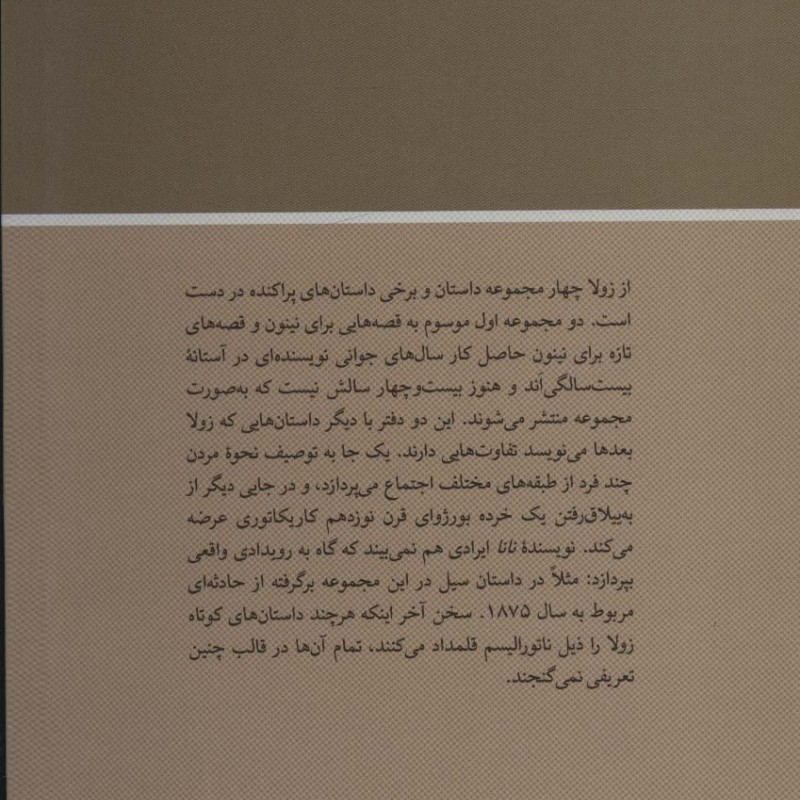 از زولا چهار مجموعه داستان و برخی داستان‌های پراکنده در دست
است. دو مجموعه اول موسوم به قصه‌هایی برای نینون و قصه‌های
تازه برای نینون حاصل کار سال‌های جوانی نویسنده‌ای در آستانهٔ
بیست‌سالگی‌اند و هنوز بیست‌وچهار سالش نیست که به‌صورت
مجموعه منتشر می‌شوند. این دو دفتر با دیگر داستان‌هایی که زولا
بعدها می‌نویسد تفاوت‌هایی دارند. یک جا به توصیف نحوهٔ مردن
چند فرد از طبقه‌های مختلف اجتماع می‌پردازد، و در جایی دیگر از
به‌ییلاق‌رفتن یک خرده بورژوای قرن نوزدهم کاریکاتوری عرضه
می‌کند. نویسندهٔ نانا ایرادی هم نمی‌بیند که گاه به رویدادی واقعی
بپردازد: مثلاً در داستان سیل در این مجموعه برگرفته از حادثه‌ای
مربوط به سال ۱۸۷۵. سخن آخر اینکه هرچند داستان‌های کوتاه
زولا را ذیل ناتورالیسم قلمداد می‌کنند، تمام آن‌ها در قالب چنین
تعریفی نمی‌گنجند.